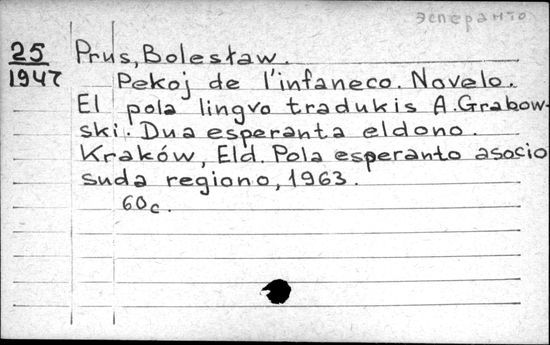 эсперанто
25
1947
Prus, Bolesław.
Pekoj de l'infaneco. Novelo.
El pola lingvo tradukis A. Grabow-
ski. Dua esperanta eldono.
Kraków, Eld. Pola esperanto asocio
suda regiono, 1963.
60c.